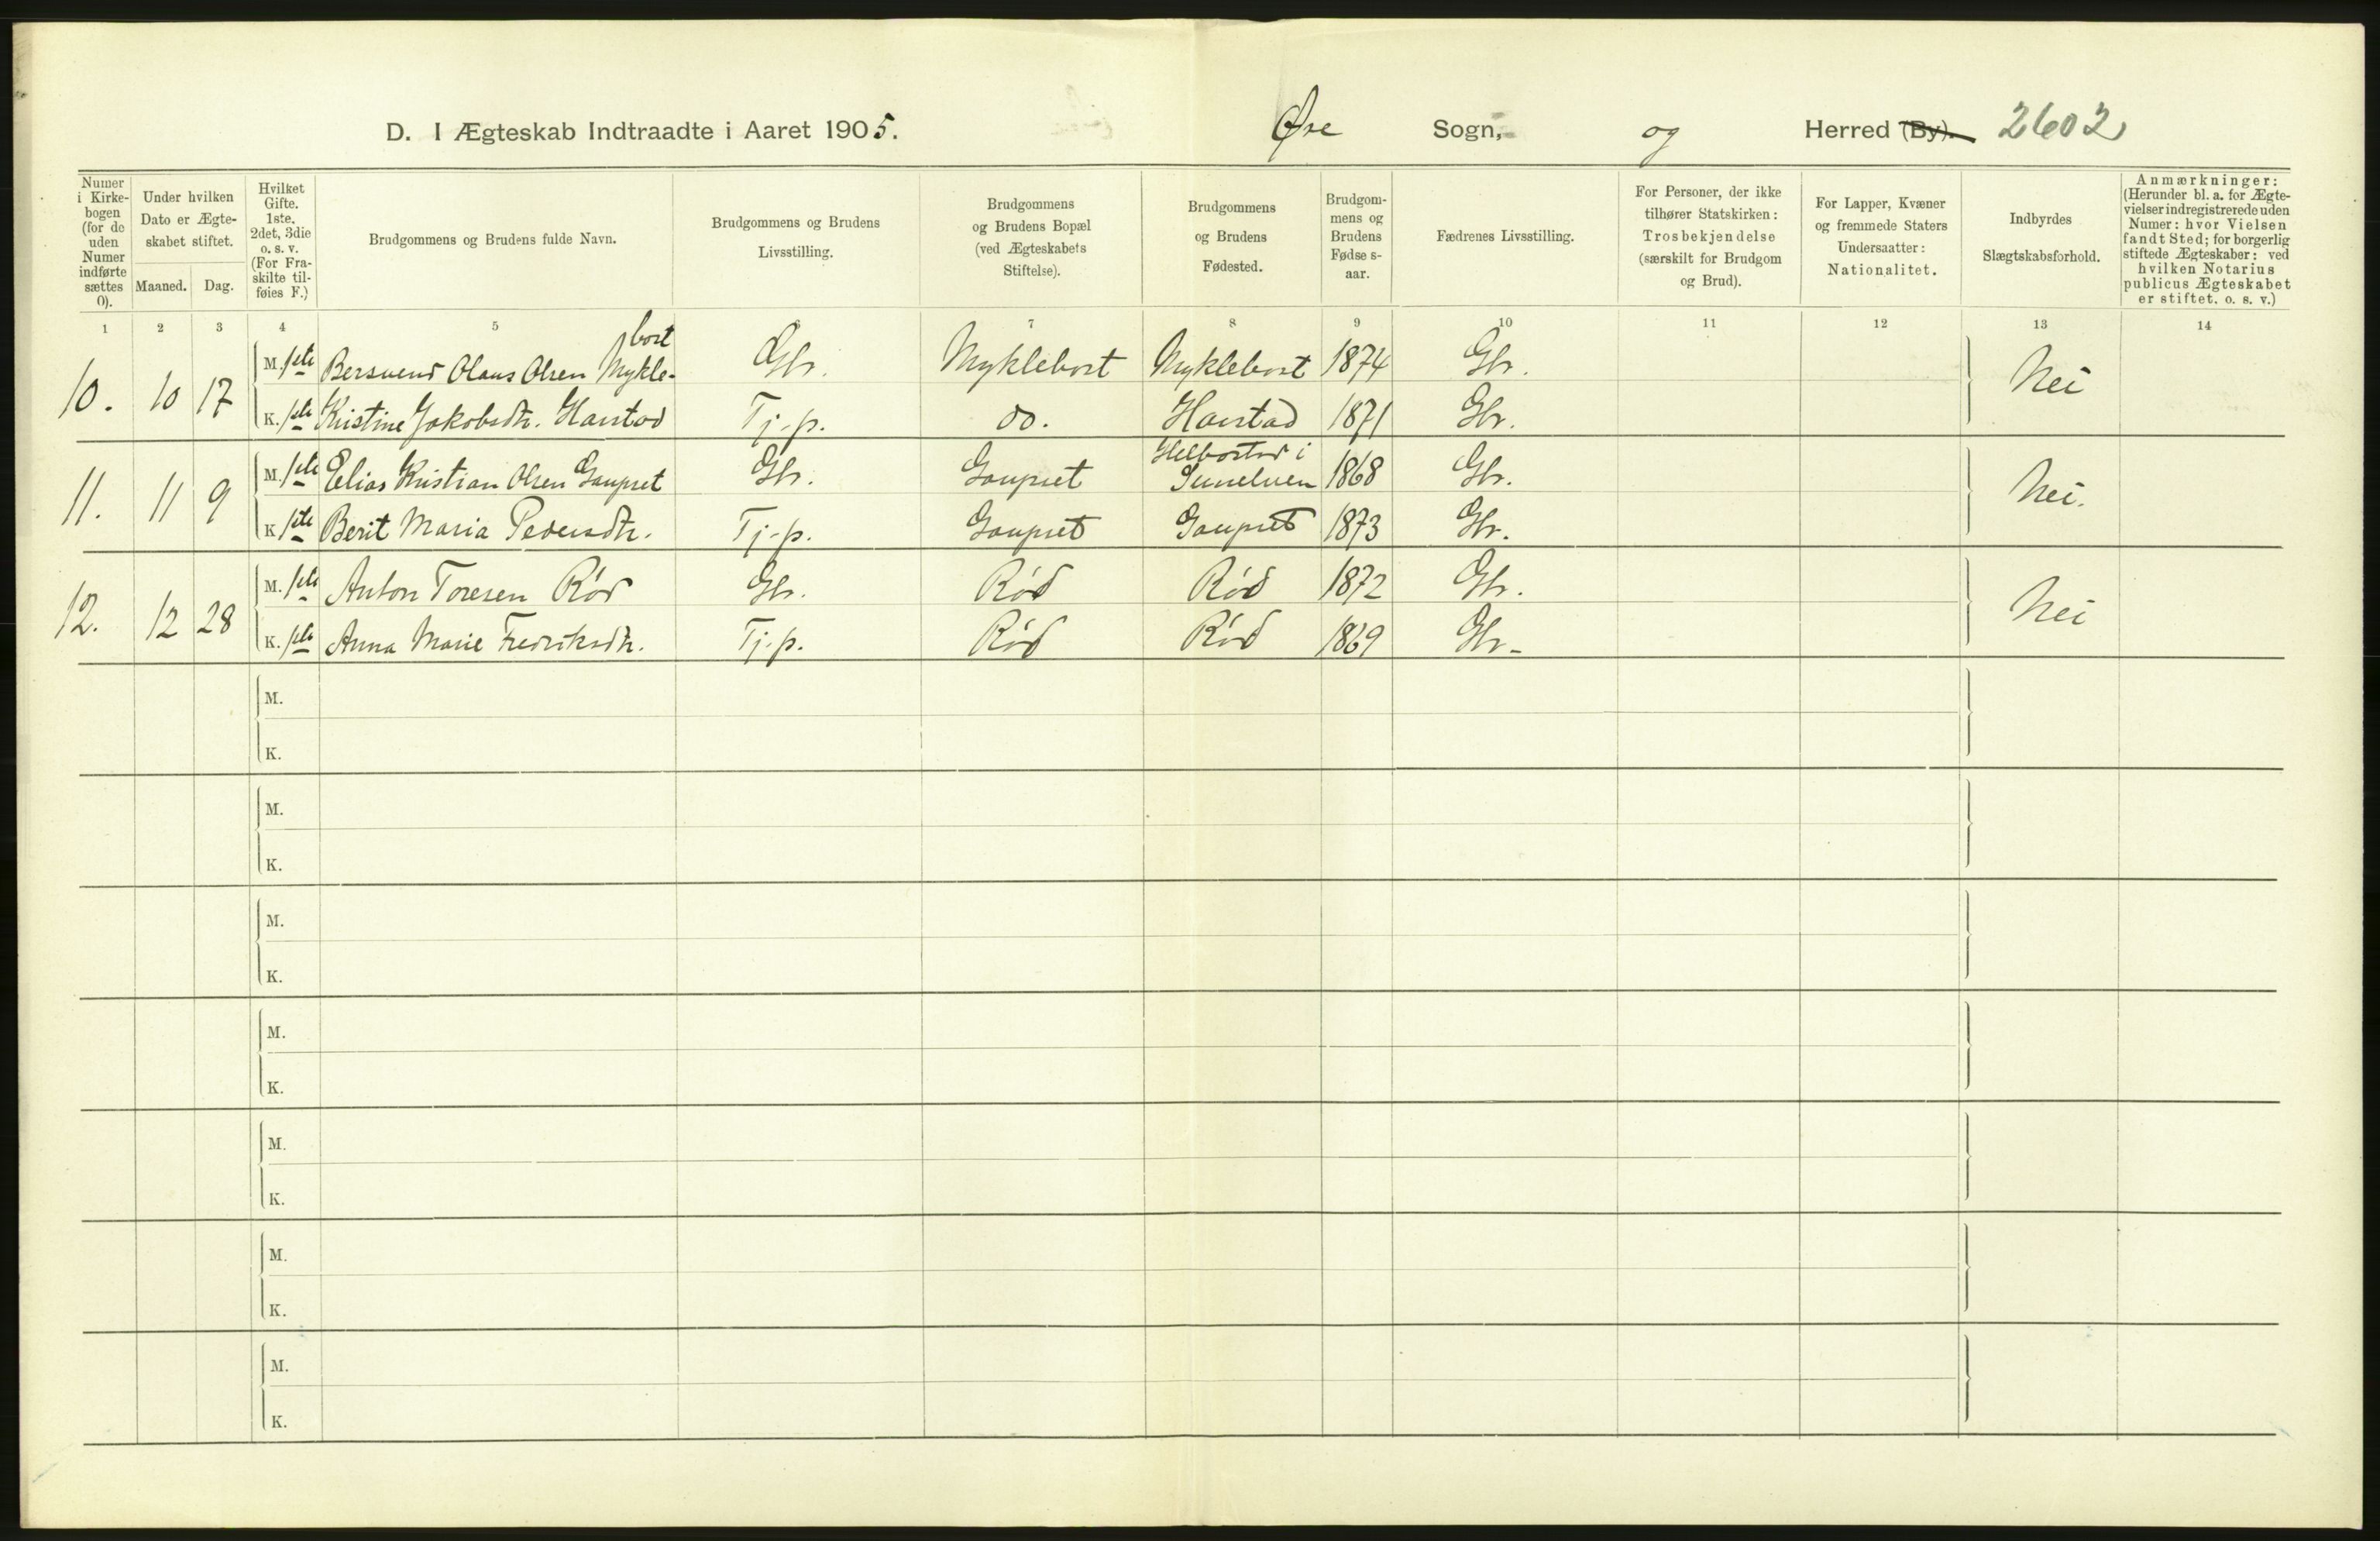 D. I Ægteskab Indtraadte i Aaret 1905. Øre Sogn, og Herred (By). 2602
Numer i Kirke-bogen (for de uden Numer indførte sættes 0).
Under hvilken Dato er Ægte-skabet stiftet.
Maaned. Dag.
Hvilket Gifte. 1ste, 2det, 3die o. s. v. (For Fra-skilte til-føies F.)
Brudgommens og Brudens fulde Navn.
Brudgommens og Brudens Livsstilling.
Brudgommens og Brudens Bopæl (ved Ægteskabets Stiftelse).
Brudgommens og Brudens Fødested.
Brudgom-mens og Brudens Fødses-aar.
Fædrenes Livsstilling.
For Personer, der ikke tilhører Statskirken: Trosbekjendelse (særskilt for Brudgom og Brud).
For Lapper, Kvæner og fremmede Staters Undersaatter: Nationalitet.
Indbyrdes Slægtskabsforhold.
Anmærkninger: (Herunder bl. a. for Ægte-vielser indregistrerede uden Numer: hvor Vielsen fandt Sted; for borgerlig stiftede Ægteskaber: ved hvilken Notarius publicus Ægteskabet er stiftet. o. s. v.)
1 2 3 4 5 6 7 8 9 10 11 12 13 14
10. 10 17 M. 1ste Bersvend Olaus Olsen Mykle-bost Gbr. Myklebost Myklebost 1874 Gbr. Nei
K. 1ste Kristine Jakobsdtr. Harstad Tj.p. do. Harstad 1871 Gbr.
11. 11 9 M. 1ste Elias Kristian Olsen Gaupset Gbr. Gaupset i Sunelven 1868 Gbr. Nei.
K 1ste Berit Maria Pedersdtr. Tj.p. Gaupset Gaupset 1873 Gbr.
12. 12 28 M. 1ste Anton Toresen Rød Gbr. Rød Rød 1872 Gbr. Nei
K. 1ste Anna Marie Fredriksdtr. Tj.p. Rød Rød 1869 Gbr.
M.
K.
M.
K.
M.
K.
M.
K.
M.
K.
M.
K.
M.
K.